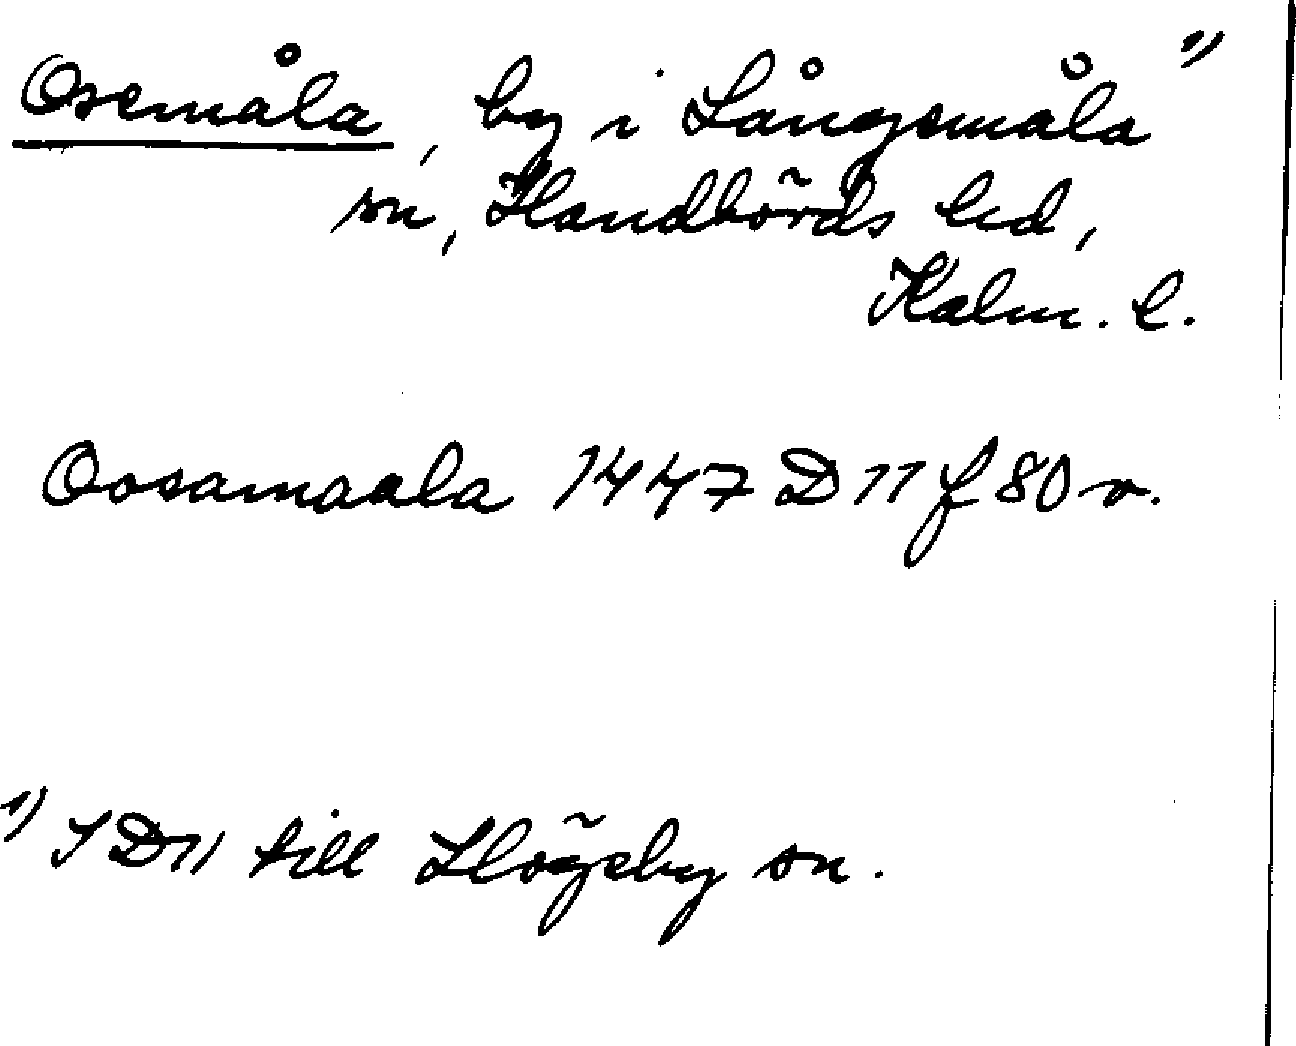 Osemåla, by i Långemåla ¹)
sn, Handbörds hd,
Kalm. l.
Oosamaala 1447 D 11 f 80 v.
¹) I D 11 till Högsby sn.